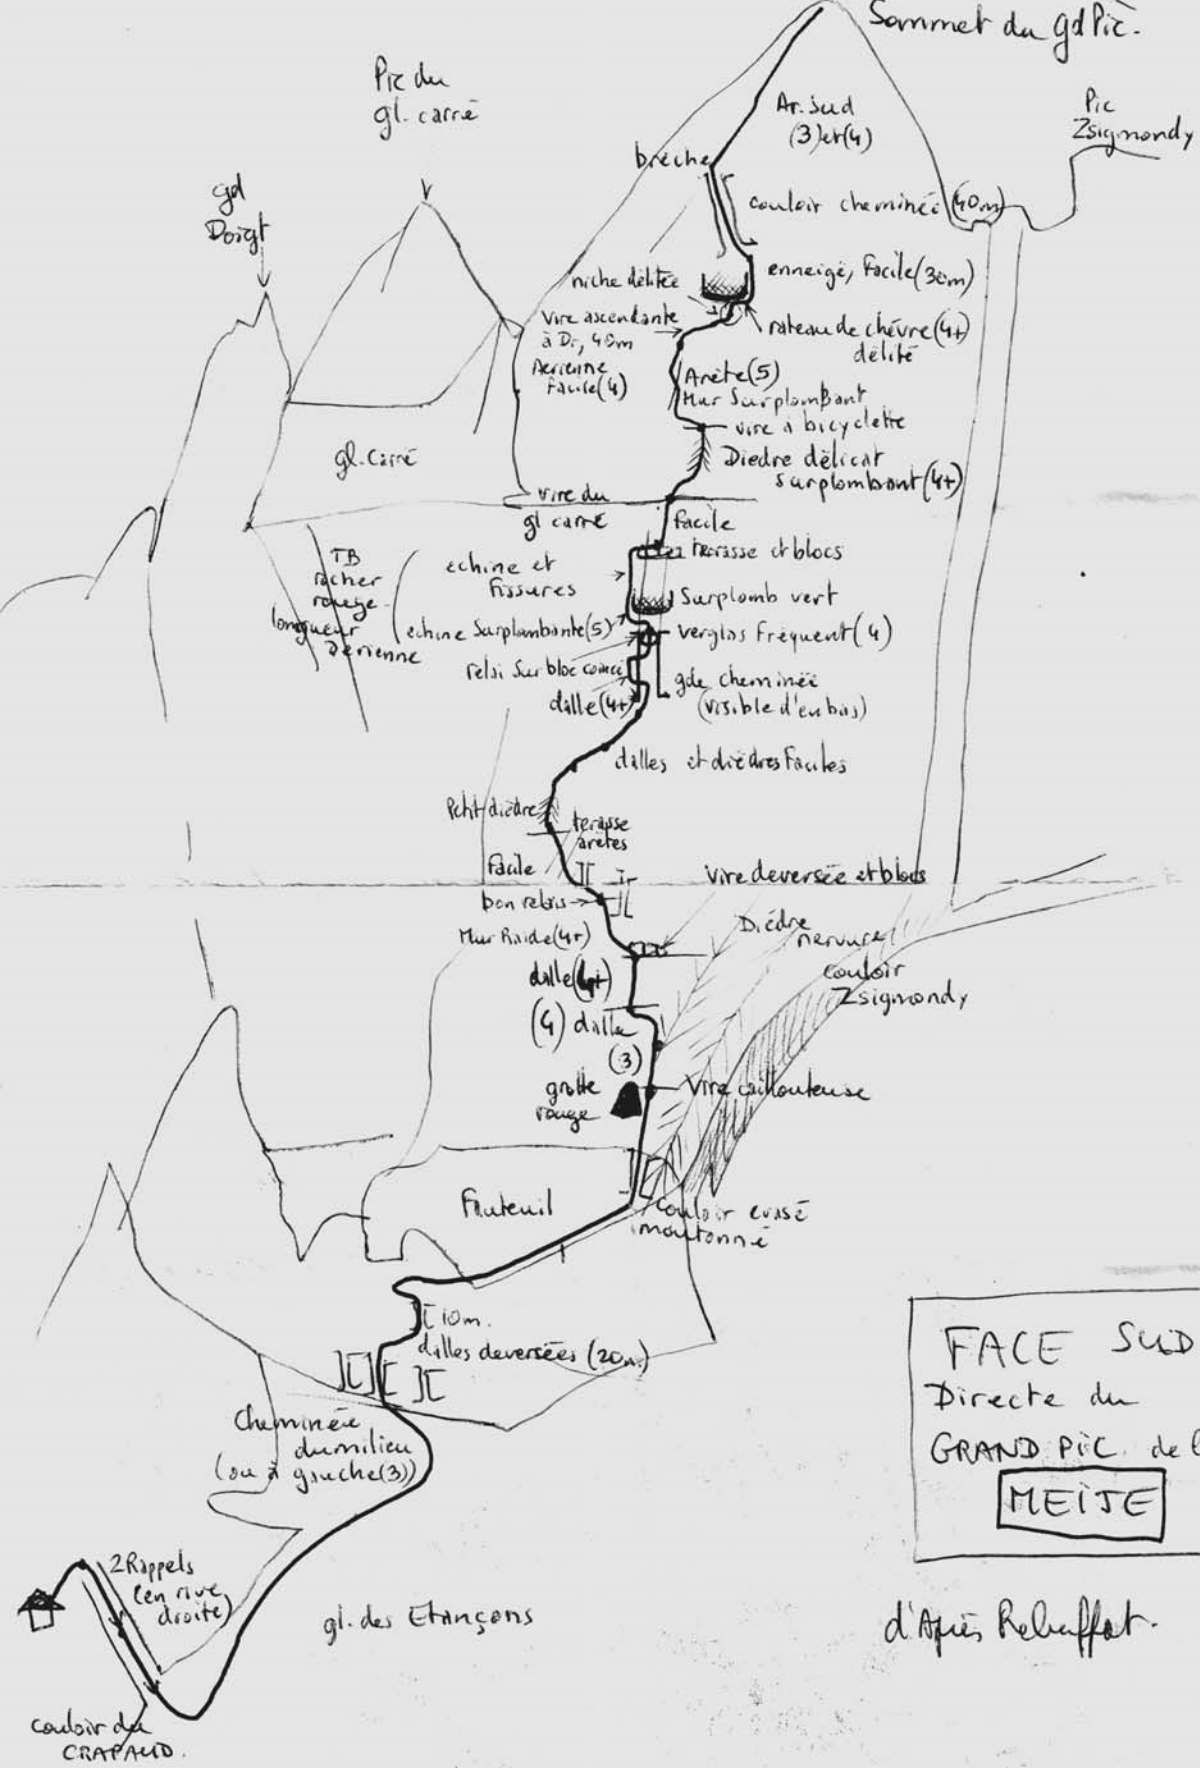 Sommet du gd Pic.
Pic du
gl. carré
Ar. Sud
(3) et (4)
Pic
Zsigmondy
brèche
gd
Doigt
couloir cheminée (40m)
niche délitée
enneigé, Facile (30m)
Vire ascendante
à Dr, 40m
Aerienne
Facile (4)
rateau de chèvre (4+)
délité
Arête (5)
Mur Surplombant
vire à bicyclette
gl. Carré
Diedre délicat
surplombant (4+)
vire du
gl carré
Facile
TB
rocher
rouge
longueur
Aérienne
echine et
Fissures
terrasse et blocs
Surplomb vert
echine Surplombante (5)
verglas Fréquent (4)
relai Sur bloc coincé
gde cheminée
(visible d'en bas)
dalle (4+)
dalles et dièdres Faciles
Petit dièdre
terasse
arêtes
Facile
Vire deversée et blocs
bon relais
Mur Raide (4+)
Dièdre
nervure
dalle (4+)
couloir
Zsigmondy
(4) dalle
(3)
grotte
rouge
Vire caillouteuse
Fauteuil
Couloir evasé
moutonné
10m.
dalles deversées (20m)
Cheminée
du milieu
(ou à
gauche (3))
FACE SUD
Directe du
GRAND PIC de l
MEIJE
2 Rappels
(en rive
droite)
gl. des Etançons
d'Après Rebuffat.
couloir du
CRAPAUD.